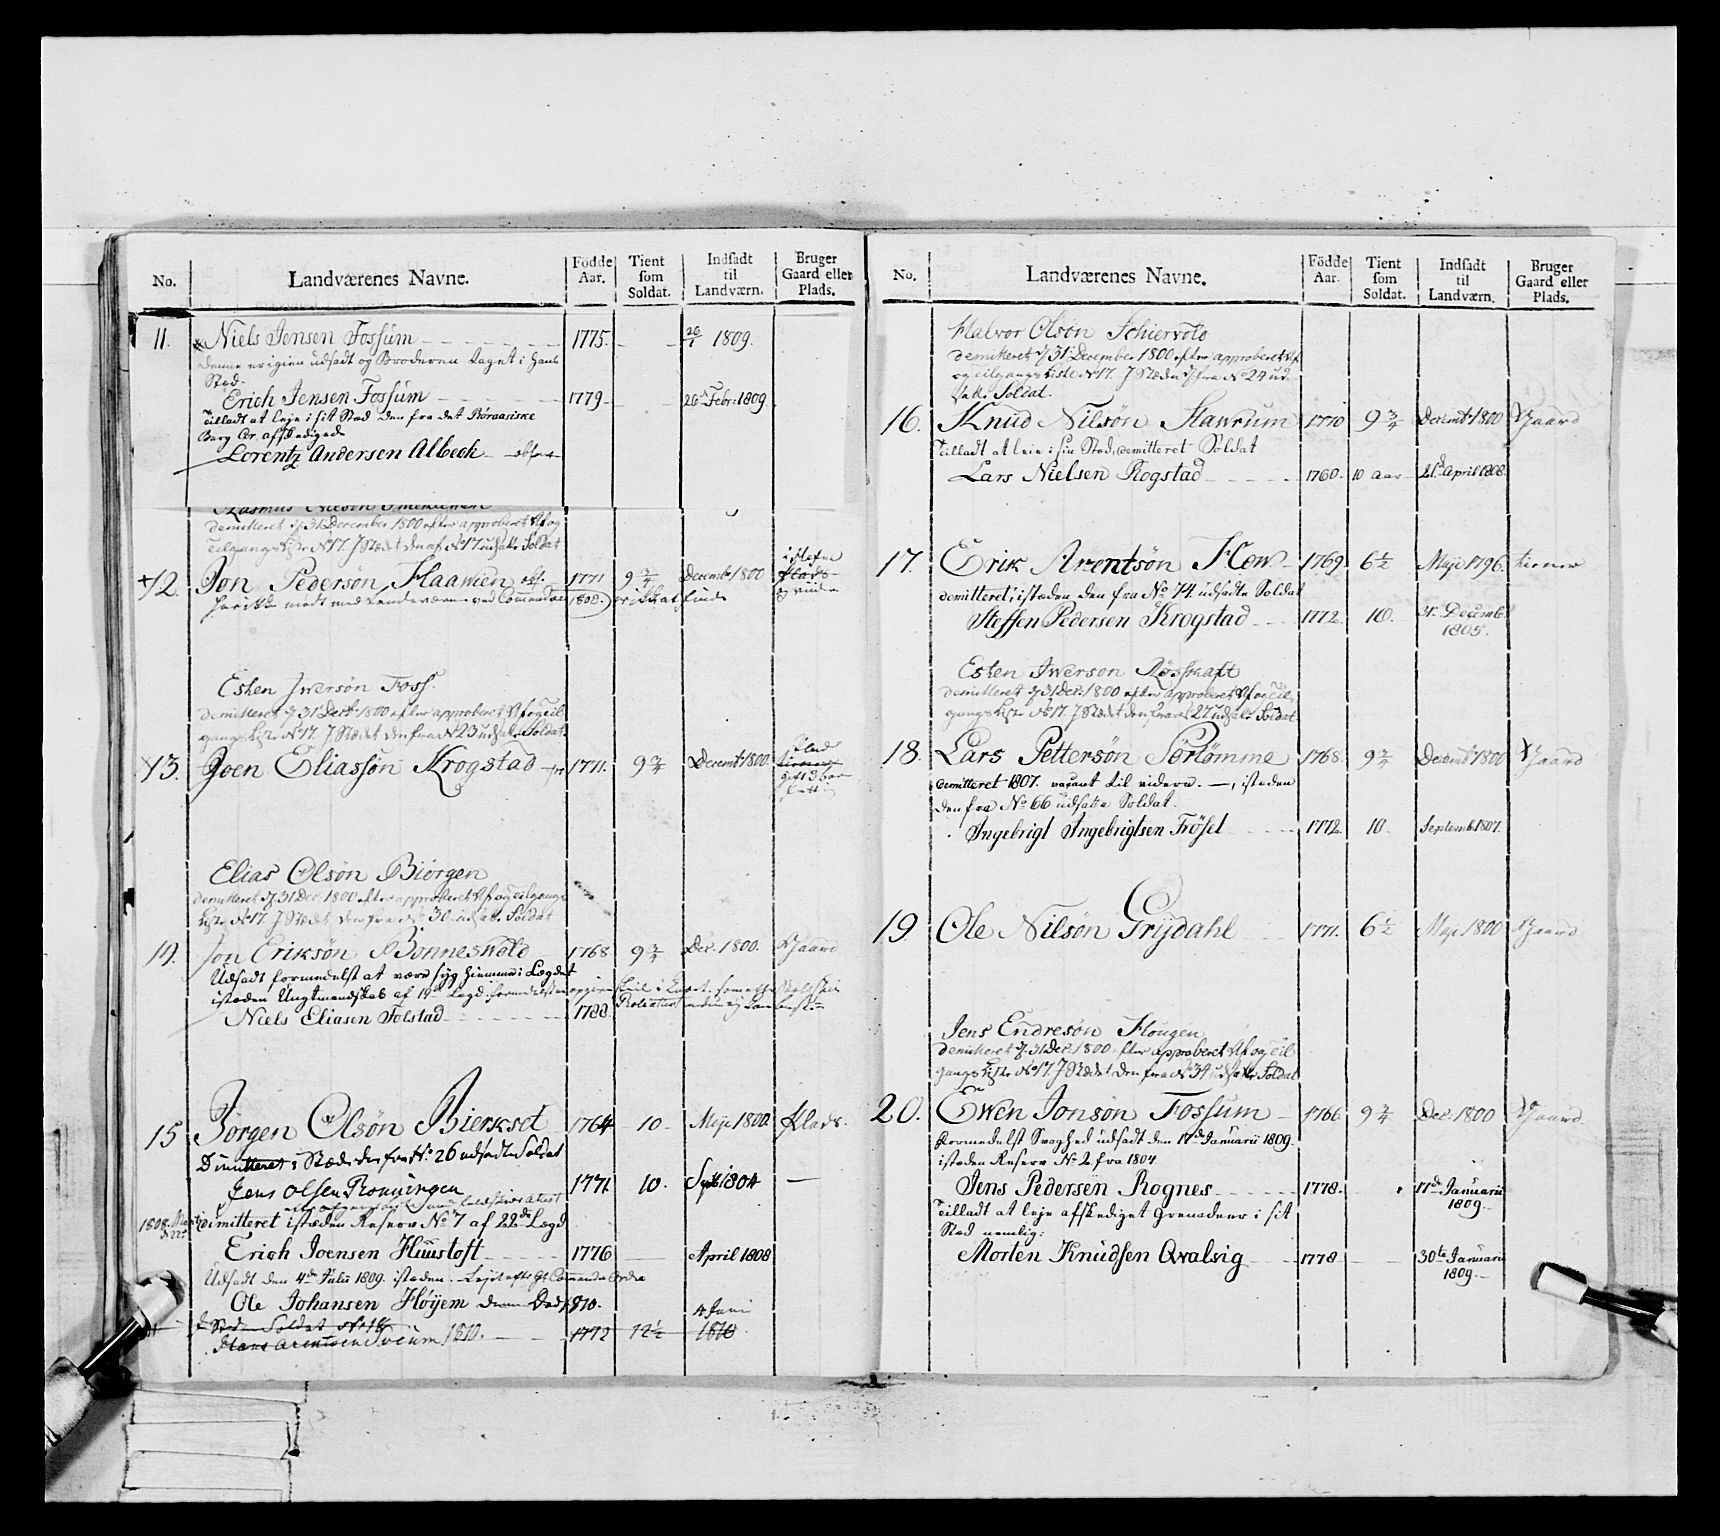 No. Landværenes Navne. Fødde Aar. Tient som Soldat. Indsadt til Landværn. Bruger Gaard eller Plads.
11. Niels Jensen Fossum 1775. 26/1 1809.
Denne erigien udsadt og Broderen taget i hans
Sted.
Erich Jensen Fossum 1779 26 Febr: 1809
Tilladt at leje i sit Sted den fra det Röraasiske
Berg Cor. afskedigede
Lorentz Andersen Albech
Rasmus Nilsøn
demitteret d. 31 December 1800 efter approberet Af og
Tilgangs Liste No 17. I Stædet den af No 17 udsatte Soldat
12. Jon Pedersøn Flaamen 1771 9 3/4 Decembr 1800 Plads
1808.
Esten Iwersøn Foss.
demitteret d. 31 Decbr 1800 efter approberet Af og til
gangs Liste No 17. I Stædet den fra No 23 udsatte Soldat.
13. Joen Eliassøn Krogstad 1771. 9 3/4 Decembr 1800
Plad
gift 3 børn
Elias Olsøn Biörgen
demitteret d. 31 Dec. 1800 efter approberet Af og tilgangs
Liste No 17. I Stædet den fra No 30 udsatte Soldat
19. Jon Eriksøn Bonneswold 1768 9 3/4 Dec. 1800. Gaard
Udsadt formedelst at være syg hiemme i Lægdet
istæden Ungtmandskab af 19de Lægd.
Niels Eliasen Folstad 1788
15 Jørgen Olsøn Bierkset 1764 10 Maji 1800. Plads.
Dimitteret i Stæden den fra No 26 udsadte Soldat
Jens Olsen Ronningen 1771 10. Septb 1804
1808. dimitteret istæden Reserv No 7 af 22de Lægd
Erich Joensen Huustoft 1776 April 1808
Udsadt den 4de Julii 1809. istæden
Ole Johansen Høyem denne Død 1810.
Soldat No 14 4 Juni
Hans Arentsen Soeum 1810. 1772 12 1/2 1810
No. Landværenes Navne. Fødde Aar. Tient som Soldat. Indsadt til Landværn. Bruger Gaard eller Plads.
Halvor Olsøn Schiervold
demitteret d. 31 December 1800 efter approberet Af
og tilgangs Liste No 17. I Stæden d. fra No 24 ud-
satte Soldat.
16. Knud Nilsøn Hawrum 1770 9 3/4 Decembr 1800 Gaard
Tilladt at leie i sin Sted, demitteret Soldat
Lars Nielsen Rogstad 1760. 10 Aar 21de April 1808
17. Erik Arentsøn Flow 1769. 6 1/2 Maji 1796. tiener
demitteret; istæden den fra No 74. udsadte Soldat
Steffen Pedersen Krogstad 1772. 10. 31. Decemb.
1805.
Esten Iwersøn Røsskaft
demitteret d. 31 Dec. 1800 efter approberet Af og Til
gangs Liste No 17. I Stædet den fra No 27 udsatte Soldat
18. Lars Pettersøn Sørtømme 1768. 9 3/4 Decembr 1800 Gaard
demitteret 1807. vacant til videre. —, istæden
den fra No 66 udsatte Soldat.
Ingebrigt Ingebrigtsen Frösel 1772. 10. Septemb. 1807.
19 Ole Nilsøn Grijdahl 1771. 6 1/2 Maji 1800 Gaard
Jens Endresøn Hougen
demitteret d. 31 Dec. 1800 efter approberet Af og til
gangs Liste No 17. I Stædet den fra No 34 udsatte Soldat
20. Ewen Jonsøn Fossum 1766. 9 3/4 Dec. 1800 Gaard.
formedelst Svaghed udsadt den 17de Januarii 1809.
istæden Reserv No 2. fra 1804
Jens Pedersen Rognes 1778. 17de Januarii
1809.
Tilladt at leje afskediget Grenadeer i sit
Sted nemlig:
Morten Knudsen Qvalvig 1778 30te Januarii
1809.